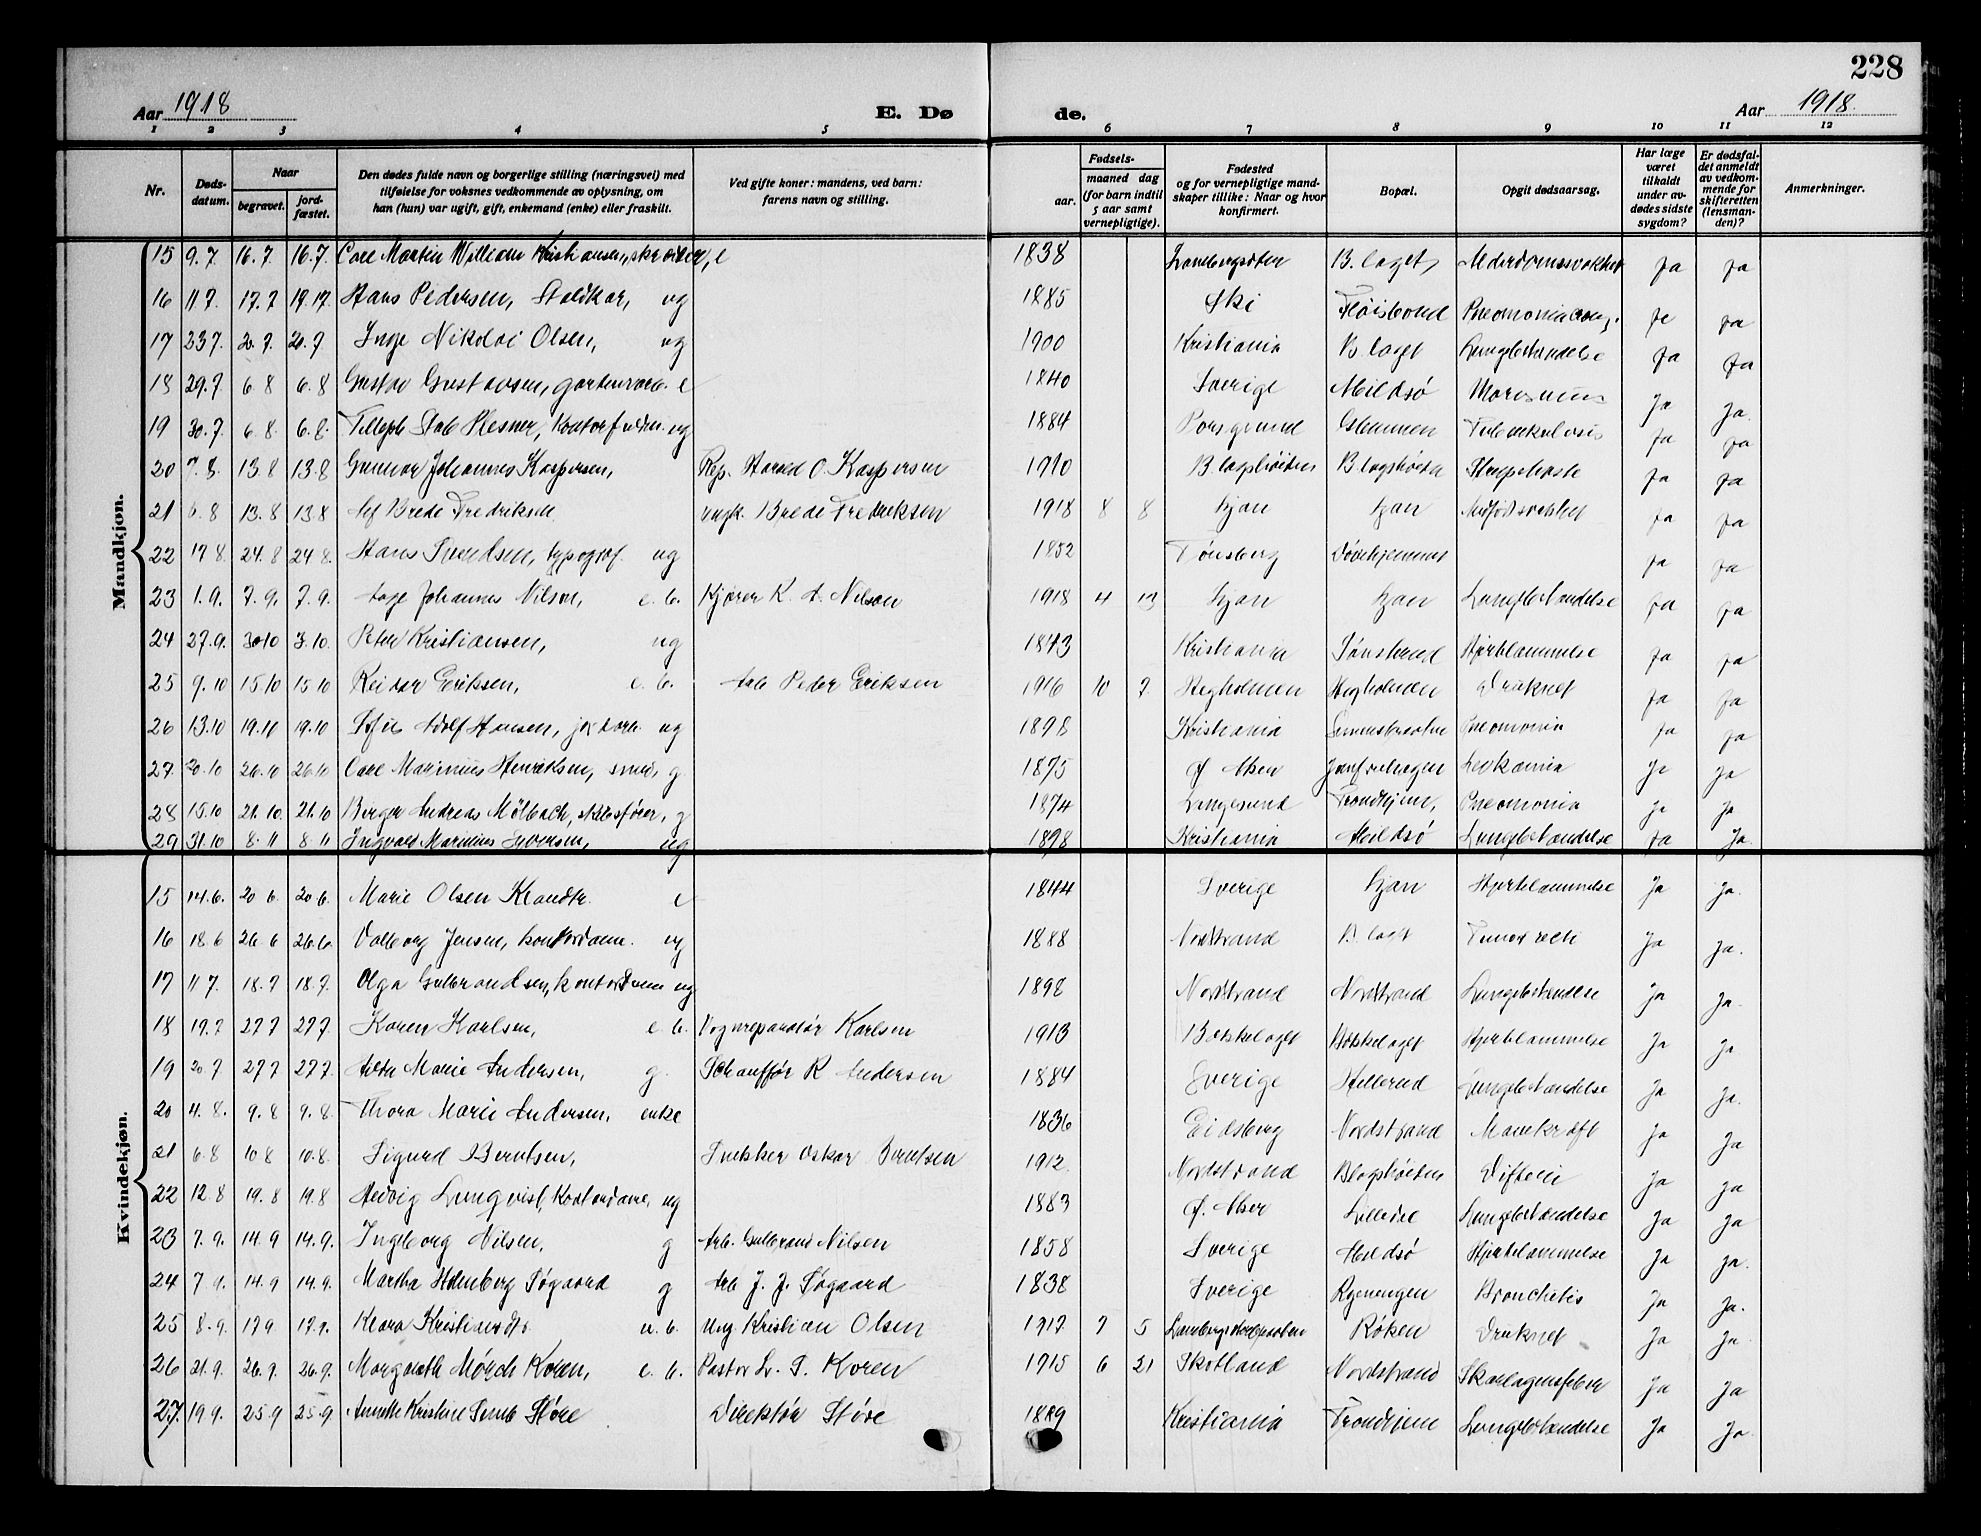 228
Aar 1918 E. Dø de. Aar 1918.
1 2 3 4 5 6 7 8 9 10 11 12
Nr. Døds-datum. Naar begravet. jord-fæstet. Den dødes fulde navn og borgerlige stilling (næringsvei) med tilføielse for voksnes vedkommende av oplysning, om han (hun) var ugift, gift, enkemand (enke) eller fraskilt. Ved gifte koner: mandens, ved barn: farens navn og stilling. Fødsels- aar. maaned dag (for barn indtil 5 aar samt vernepligtige). Fødested og for vernepligtige mand-skaper tillike: Naar og hvor konfirmert. Bopæl. Opgit dødsaarsag. Har læge været tilkaldt under av-dødes sidste sygdom? Er dødsfal-det anmeldt av vedkom-mende for skifteretten (lensman-den)? Anmerkninger.
Mandkjøn.
15 9.7 16.7. 16.7. Carl Martin William Kristiansen, e 1838 B.laget, ja ja
16 11 7. 17.7 Hans Pedersen, Staldkar, ug 1885 Ski Fløisbond ja ja
17 23 7. Inge Nikolai Olsen, ug 1900 Kristiania B. laget Lungebetændelse ja ja
18 29.7 6.8 6.8 Gustav Gustavsen, e 1840 Sverige Mildsø Marasmus Ja Ja.
19 30.7 6.8. 6.8. ug 1884 Porsgrund Tuberkulosis ja ja
20 7.8. 13.8 13.8 Gunnar Johannes Kaspersen, Rep. Harald O. Kaspersen 1910 B.lagshøiden B.lagshøiden Strupehoste ja ja
21 6.8 13.8 13.8 Brede Fredriksen Brede Fredriksen 1918 8 8 Ljan Ljan ja ja
22 17 8. 24.8 24 8. Hans Svendsen, typograf. ug 1852 Tønsberg Døvehjemmet ja ja
23 1.9. 7.9. 7.9. Aage Johannes Nilsen, e. b. Kjører K. A. Nilsen 1918 4 13 Ljan Ljan Lungebetændelse ja ja
24 27.9. 3.10. Peter Kristiansen, ug 1843 Kristiania Hjertelammelse ja ja
25 9.10 15.10 15 10 Reidar Eriksen, e. b. Arb Peder Eriksen 1916 10 7. Hegholmen Hegholmen Druknet ja ja
26 13.10 19.10 19.10 Adolf Hansen, ug 1898 Kristiania Pneomonia ja ja
27. 20.10 26.10 26.10 Carl Marinius Henriksen, smed, g. 1875 Ø. Aker Leukæmia Ja Ja
28 15.10 21.10. 21.10 Birger Andreas Mølbach, skibsfører, g 1874 Langesund Trondhjem, Pneomonia Ja Ja
29 31.10 8.11 8.11 Ingvald Marinius Iversen, ug 1898 Kristiania Mildsø Lungebetændelse ja Ja.
Kvindekjøn.
15 14.6. 20 6. 20 6. Marie Olsen e 1844 Sverige Ljan Hjertelammelse Ja Ja.
16 18.6 26.6 26.6. Valborg Jensen, kontordame. ug 1888 Nordstrand B. laget Ja Ja.
17 11 7. 18.7 18.7. Olga Gulbrandsen, kontordame ug 1898 Nordstrand Nordstrand Lungebetændelse Ja Ja.
18 19.7 27 7 27 7. Karen Karlsen, e. b. Vognreparatør Karlsen 1913 Bækkelaget Bækkelaget Hjertelammelse Ja Ja
19 20 7 27 7 27 7. Marie Andersen, g. Schauffør R Andersen 1884 Sverige Hellerud Lungebetændelse Ja Ja.
20 4.8. 9.8 9.8. Thora Marie Andersen, enke 1836 Eidsberg Nordstrand Mavekræft Ja Ja
21 6.8 10 8 10.8. Sigurd Berntsen, Snekker Oskar Berntsen 1912. Nordstrand B.lagshøiden Difteri Ja Ja
22 12.8 19.8 19.8 Hedvig Lungqvist, Kontordame, ug 1883 Ø. Aker Lungebetændelse Ja Ja
23 7.9. 14.9 14.9. Ingeborg Nilsen, g Arb. Gulbrand Nilsen 1858 Sverige Mildsø Hjertelammelse Ja Ja.
24 7.9. 14.9 14.9. Martha Holmberg Søgaard g Arb J. J. Søgaard 1838 Sverige Ryenengen Bronchitis Ja Ja.
25 8.9. 17 9 17.9. Klara u. b. Ung. Kristian Olsen 1917 7 5 Røken Druknet Ja Ja
26 21.9. 26.9. 26.9. Margareth Mørch Koren, e. b. Pastor L. S. Koren 1915 6 21 Skotland Nordstrand Skarlagensfeber Ja Ja
27. 19 9. 25.9 25.9 Annette Kristine Støre Direktør Støre 1889 Kristiania Trondhjem Lungebetændelse Ja Ja.